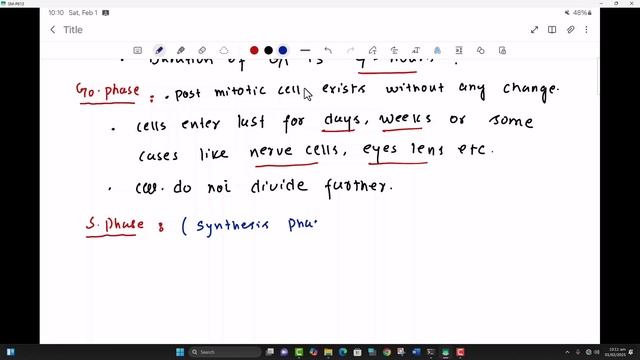 SM-P613
10:10 Sat, Feb 1
48%
Title
G0. phase : • post mitotic cell exists without any change.
• cells enter last for days, weeks or some
cases like nerve cells, eyes lens etc.
• cell do not divide further.
S. phase : ( synthesis pha
Search
10:11 am
01/02/2025